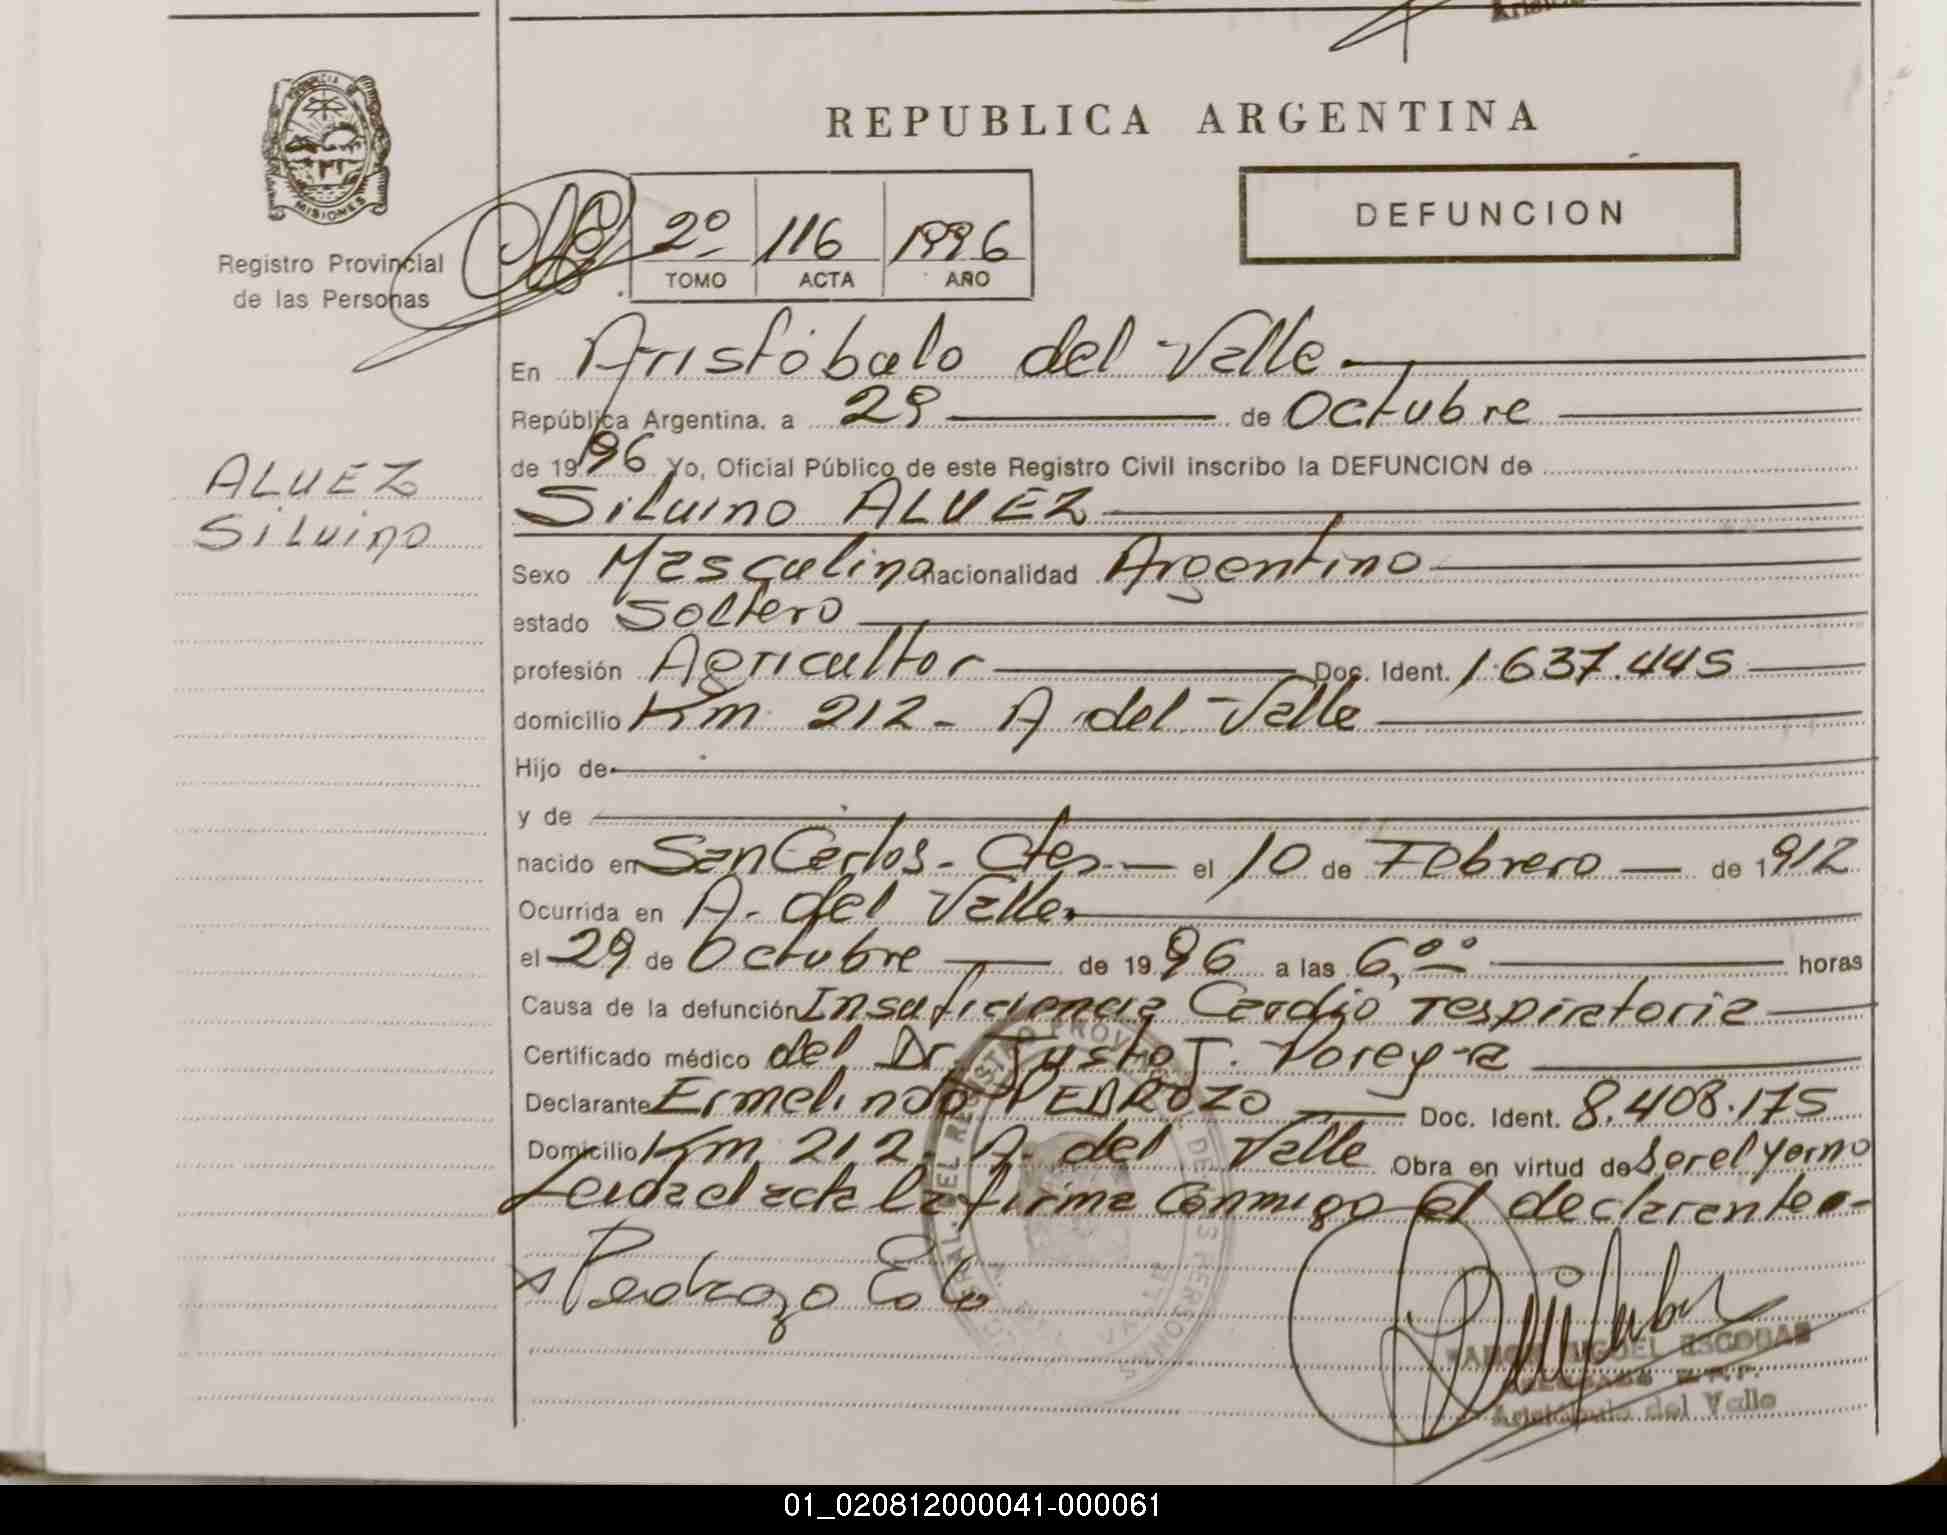 REPUBLICA ARGENTINA
PROVINCIA DE
MISIONES
Registro Provincial
de las Personas
DEFUNCION
2º 116 1996
TOMO ACTA AÑO
En Aristóbulo del Valle
República Argentina, a 29 de Octubre
de 1996 Yo, Oficial Público de este Registro Civil inscribo la DEFUNCION de
ALVEZ
Silvino
Silvino ALVEZ
Sexo Masculino nacionalidad Argentino
estado Soltero
profesión Agricultor Doc. Ident. 1.637.445
domicilio Km 212 - A. del Valle
Hijo de
y de
nacido en San Carlos - Ctes. el 10 de Febrero de 1912
Ocurrida en A. del Valle.
el 29 de Octubre de 1996 a las 6,00 horas
Causa de la defunción Insuficiencia Cardio respiratoria
Certificado médico del Dr. Justo J. Pereyra
Declarante Ermelindo PEDROZO Doc. Ident. 8.408.175
Domicilio Km 212. A. del Valle Obra en virtud de Ser el yerno
Leida el acta la firma conmigo el declarante.-
Pedrozo
MIGUEL ESCOBAR
Aristóbulo del Valle
01_020812000041-000061